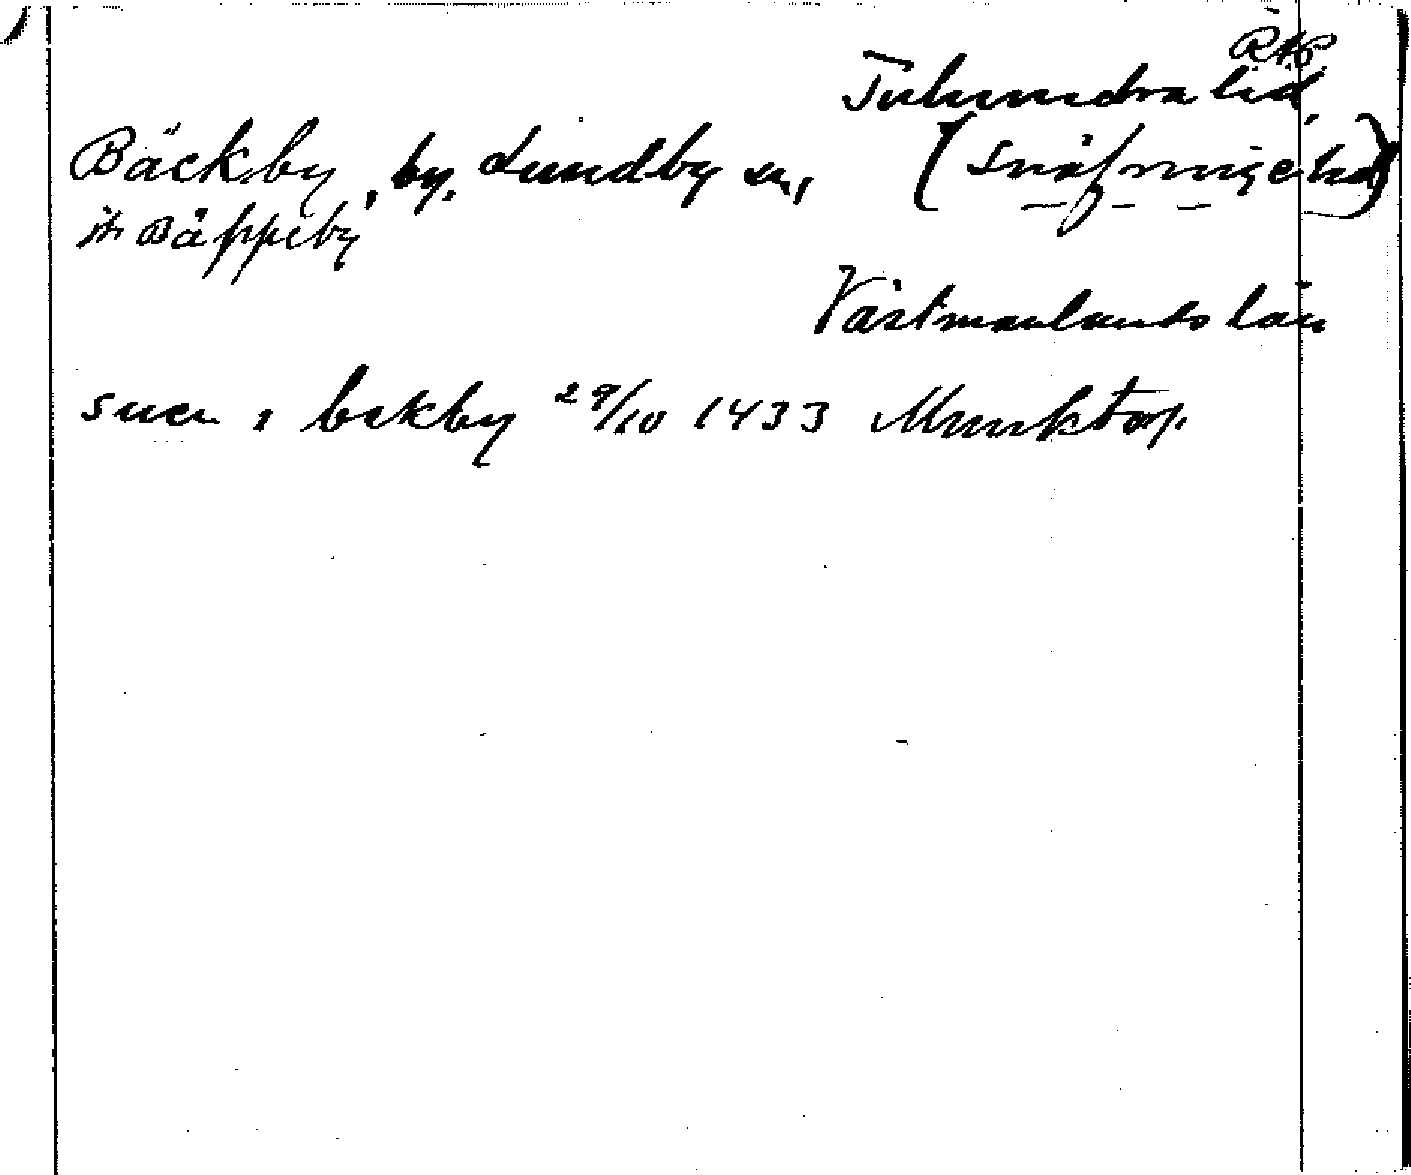 RAp
Tuhundra hd
Bäckby, by, Lundby sn, (Snäfringe hd)
Bäppeby
Västmanlands län
suen i bekby 29/10 1433 Munktorp